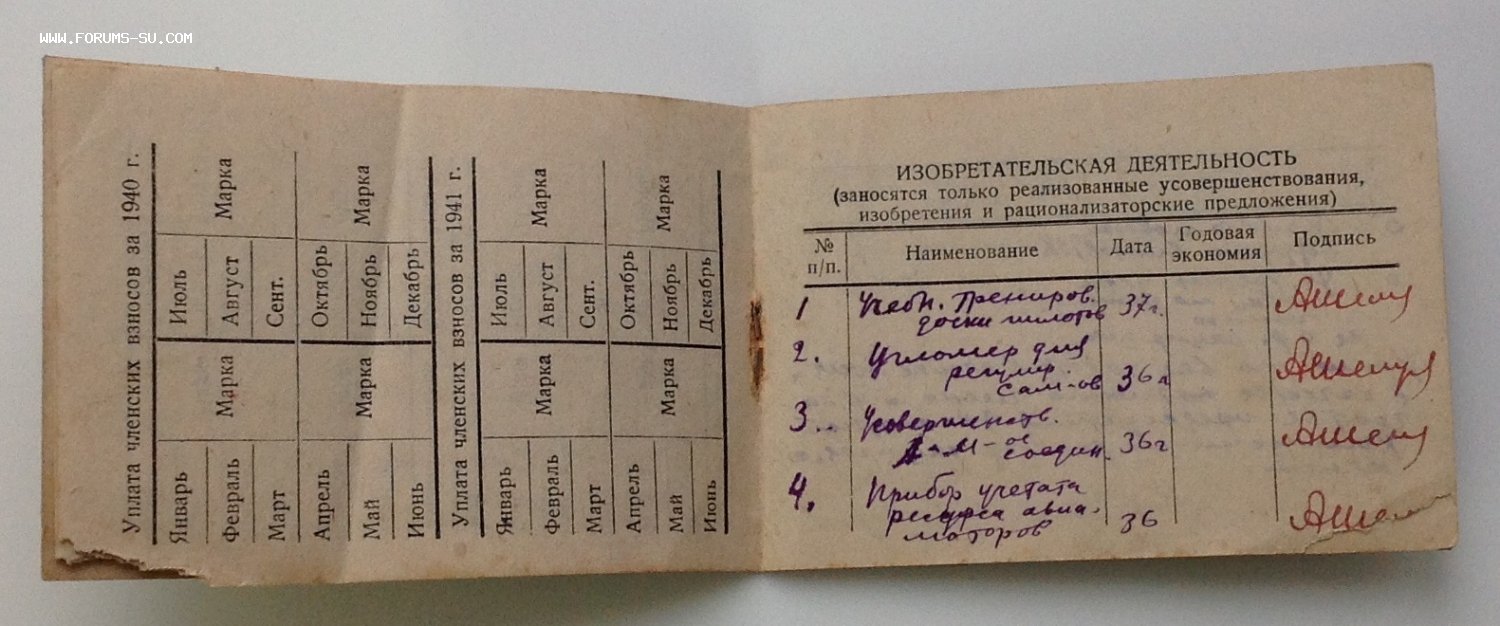 WWW.FORUMS-SU.COM
Уплата членских взносов за 1940 г.
Январь
Февраль
Март
Марка
Июль
Август
Сент.
Марка
Апрель
Май
Июнь
Марка
Октябрь
Ноябрь
Декабрь
Марка
Уплата членских взносов за 1941 г.
Январь
Февраль
Март
Марка
Июль
Август
Сент.
Марка
Апрель
Май
Июнь
Марка
Октябрь
Ноябрь
Декабрь
Марка
ИЗОБРЕТАТЕЛЬСКАЯ ДЕЯТЕЛЬНОСТЬ
(заносятся только реализованные усовершенствования,
изобретения и рационализаторские предложения)
№ п/п. Наименование Дата Годовая экономия Подпись
1 Учебн. трениров.
доски пилотов 37 г.
2. Угломер для
регулир.
сам-ов 36 г
3. Усовершенств.
соедин. 36 г
4. Прибор учетата
ресурса авиа-
моторов 36